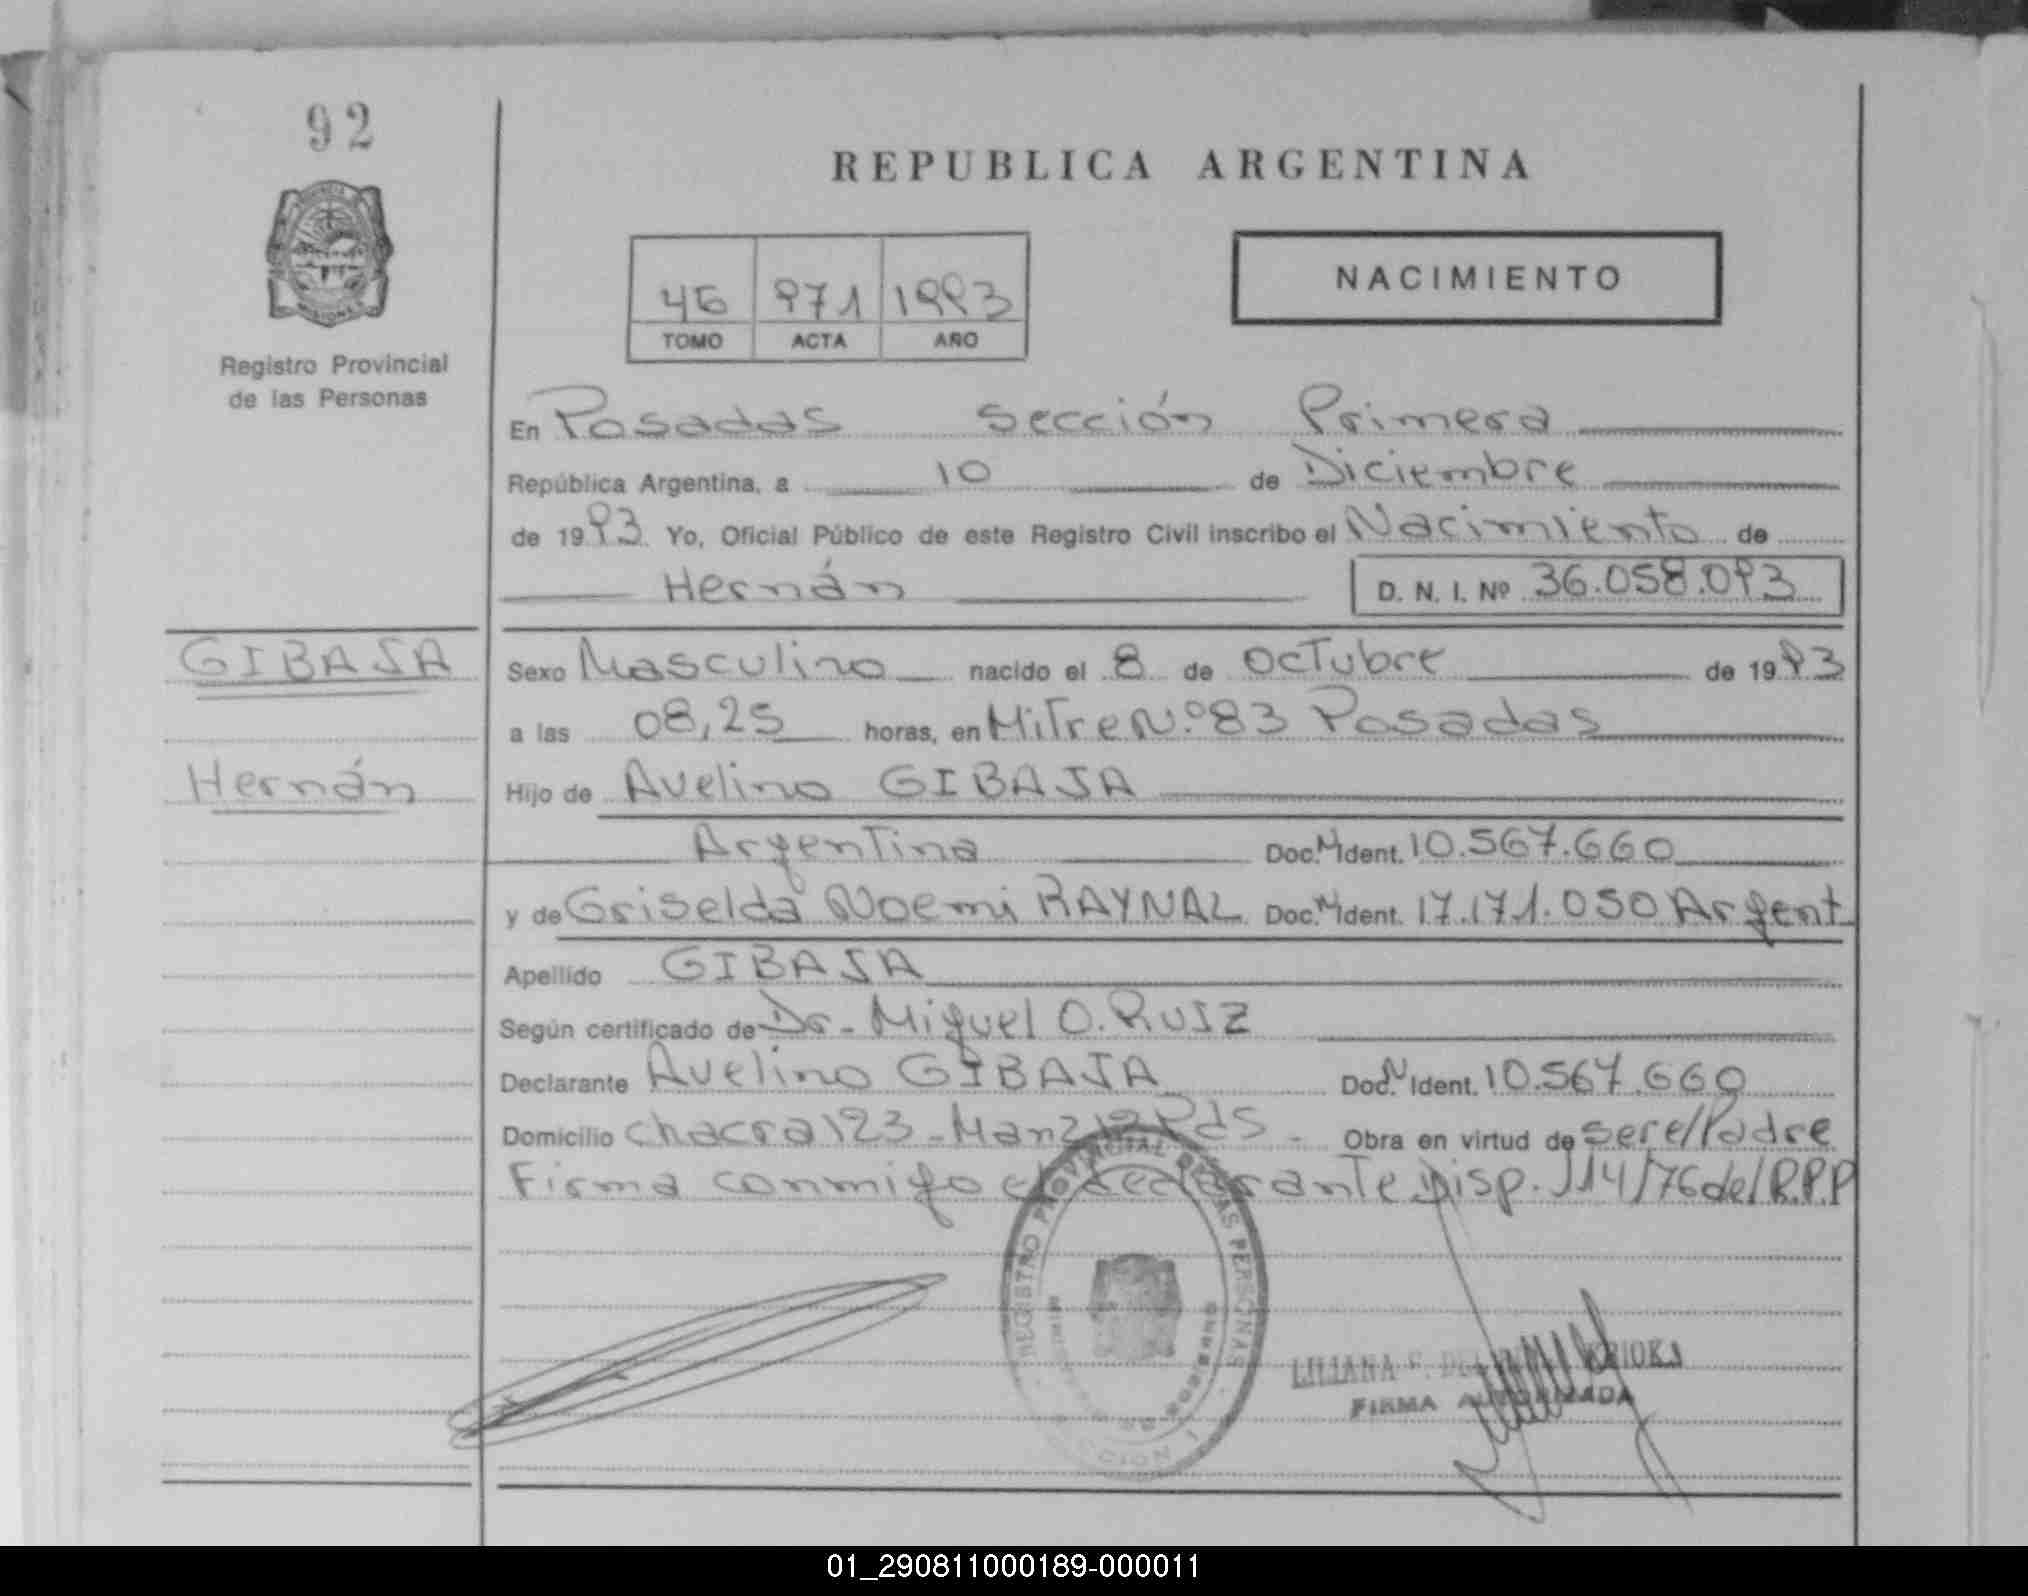 92
REPUBLICA ARGENTINA
NACIMIENTO
971 1993
TOMO ACTA AÑO
MISIONES
Registro Provincial
de las Personas
En Posadas Sección Primera
República Argentina, a 10 de Diciembre
de 1993. Yo, Oficial Público de este Registro Civil inscribo el Nacimiento de
Hernán D. N. I. Nº 36.058.093
GIBAJA
Hernán
Sexo Masculino nacido el 8 de Octubre de 1993
a las 08,25 horas, en Mitre N.º 83 Posadas
Hijo de Avelino GIBAJA
Argentina Doc. N. Ident. 10.567.660
y de Griselda Noemi RAYNAL Doc. N. Ident. 17.171.050 Argent
Apellido GIBAJA
Según certificado de Dr. Miguel O. RUIZ
Declarante Avelino GIBAJA Doc. N. Ident. 10.567.660
Domicilio Chacra 123 - Manz 12 Pds - Obra en virtud de ser el Padre
Firma conmigo el declarante Disp. 114/76 del R.P.P
REGISTRO PROVINCIAL DE LAS PERSONAS
LILIANA F.
FIRMA AUTORIZADA
01_290811000189-000011